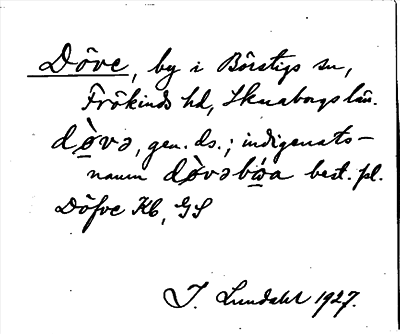 Döve, by i Börstigs sn,
Frökinds hd, Skaraborgs län.
dø̀və, gen. ds.; indigenats-
namn dø̀vəbóa best. pl.
Döfve Kb, GS
J. Lundahl 1927.